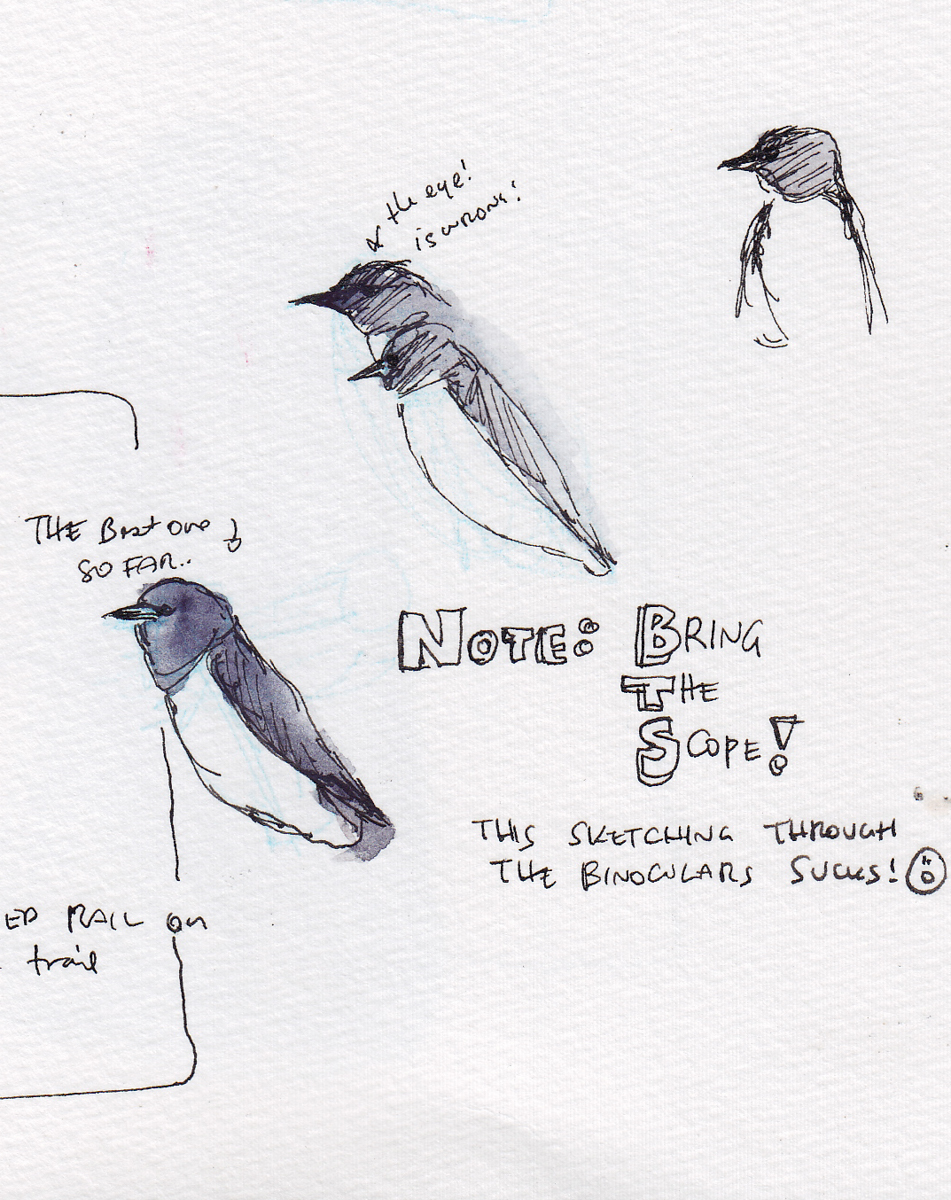 the eye!
is wrong!
THE Best one
SO FAR..
NOTE: BRING
THE
SCOPE!
THIS SKETCHING THROUGH
THE BINOCULARS SUCKS!
ED RAIL on
trail